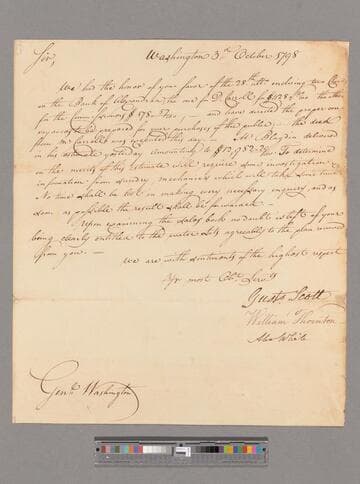 Washington 3d October 1798
Sir,
We had the honor of your favor of the 28th ulto enclosing two Checks
on the Bank of Alexandria, the one for D. Carroll for $428 the other
for the Commissioners $ 178 — and have directed the proper con-
veyances to be prepared for your purchases of the public, — the deed
from Mr Carroll was executed this day — Mr Blagdin delivered
in his estimate yesterday amounting to $12,982 To determine
on the merits of this Estimate will require some investigation &
information from sundry mechanics which will take some time.
No time shall be lost in making every necessary enquiry, and as
soon as possible the result shall be forwarded. —
Upon examining the dialog back no doubt is left of your
being clearly entitled to the water lots agreeably to the plan received
from you. —
We are with sentiments of the highest respect
Yr. most Obt. Servts
Gusts Scott
William Thornton
Alexr White
Genl. Washington